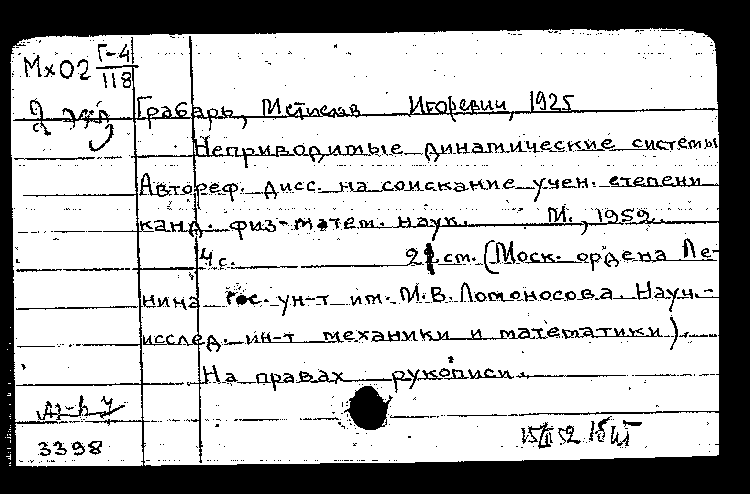 Мх02 Г-4
118
2 экз
Грабарь, Мстислав Игоревич, 1925
Неприводимые динамические системы
Автореф. дисс. на соискание учен. степени
канд. физ-матем. наук. М., 1952.
4 с. 21 см. (Моск. ордена Ле-
нина гос. ун-т им. М.В. Ломоносова. Науч.-
исслед. ин-т механики и математики).
На правах рукописи.
3398